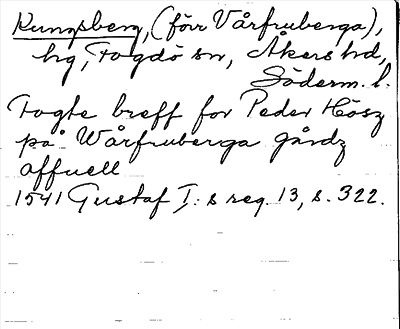 Kungsberg, (förr Vårfruberga),
hg, Fogdö sn, Åkers hd,
Söderm. l.
Fogte breff for Peder Hösz
på Wårfruberga gårdz
affuell
1541 Gustaf I:s reg. 13, s. 322.